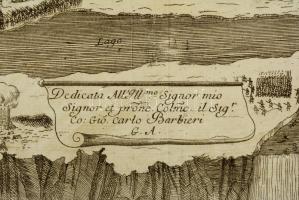 Lago
Dedicata All.Ill.mo Signor mio
Signor et prõne Colmo il Sig.r
Co: Gio, Carlo Barbieri
G. A.